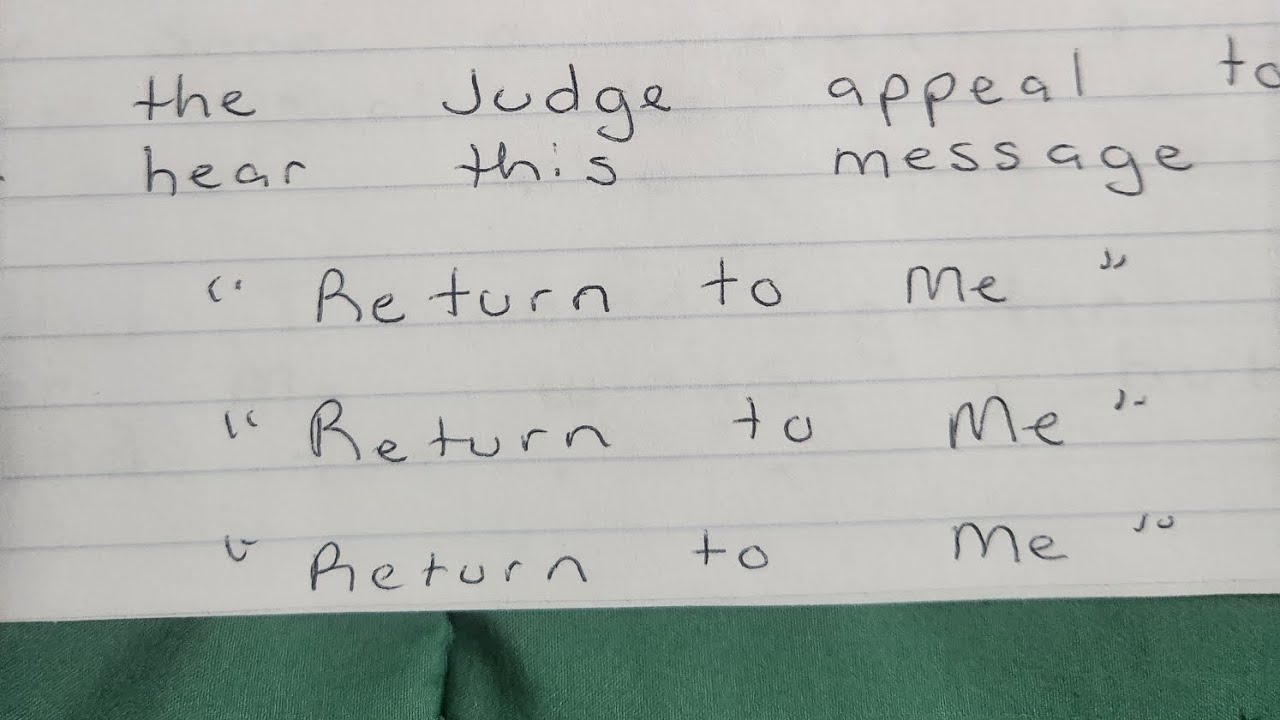 the Judge appeal to
hear this message
"Return to Me"
"Return to Me"
"Return to Me"